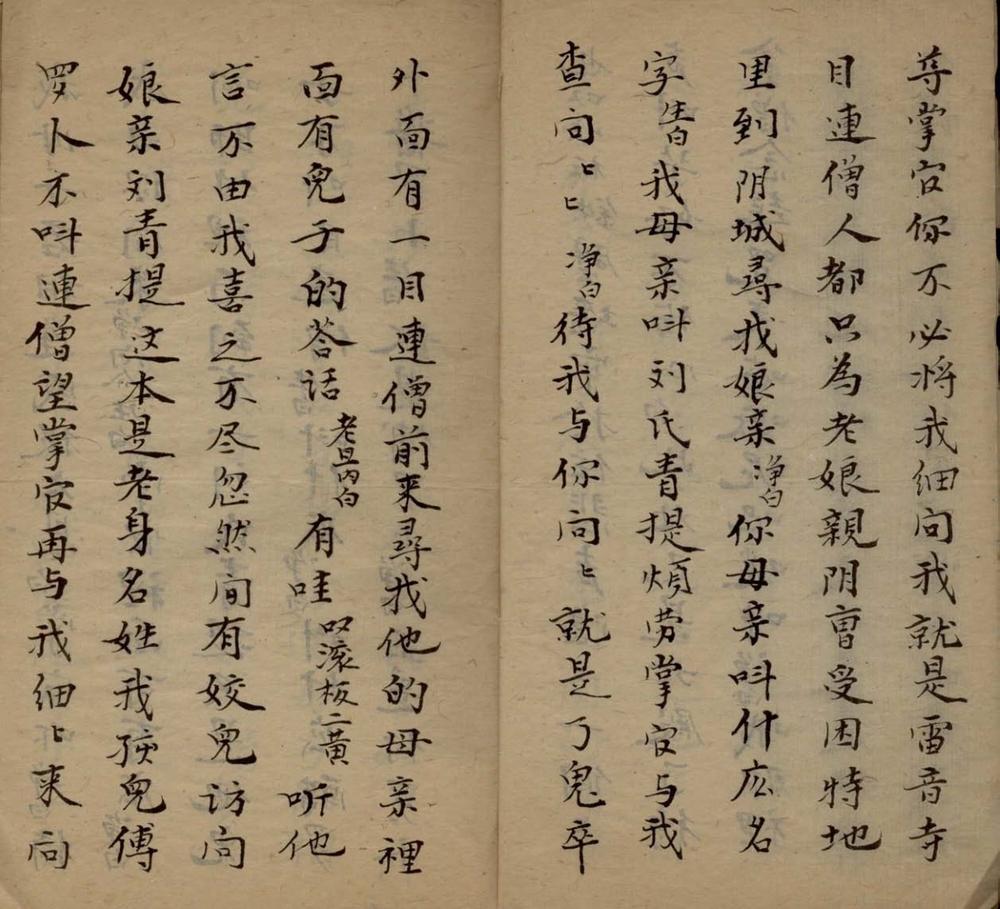 尊掌官你不必将我细问我就是雷音寺
目連僧人都只為老娘親阴曺受困特地
里到阴城尋我娘亲净白你母亲呌什庅名
字生白我母亲呌刘氏青提煩劳掌官与我
查问〻〻净白待我与你问〻就是了鬼卒
外面有一目連僧前来尋我他的母亲裡
面有兒子的答話老旦内白有哇呌滚板二黄听他
言不由我喜之不尽忽然间有姣兒访问
娘亲刘青提这本是老身名姓我孩兒傅
罗卜不呌連僧望掌官再与我细〻来问